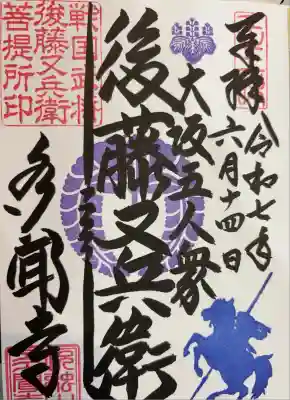 奉拝 令和七年
六月十四日
大坂五人衆
後藤又兵衛
戦国武将
後藤又兵衛
菩提所印
多聞寺